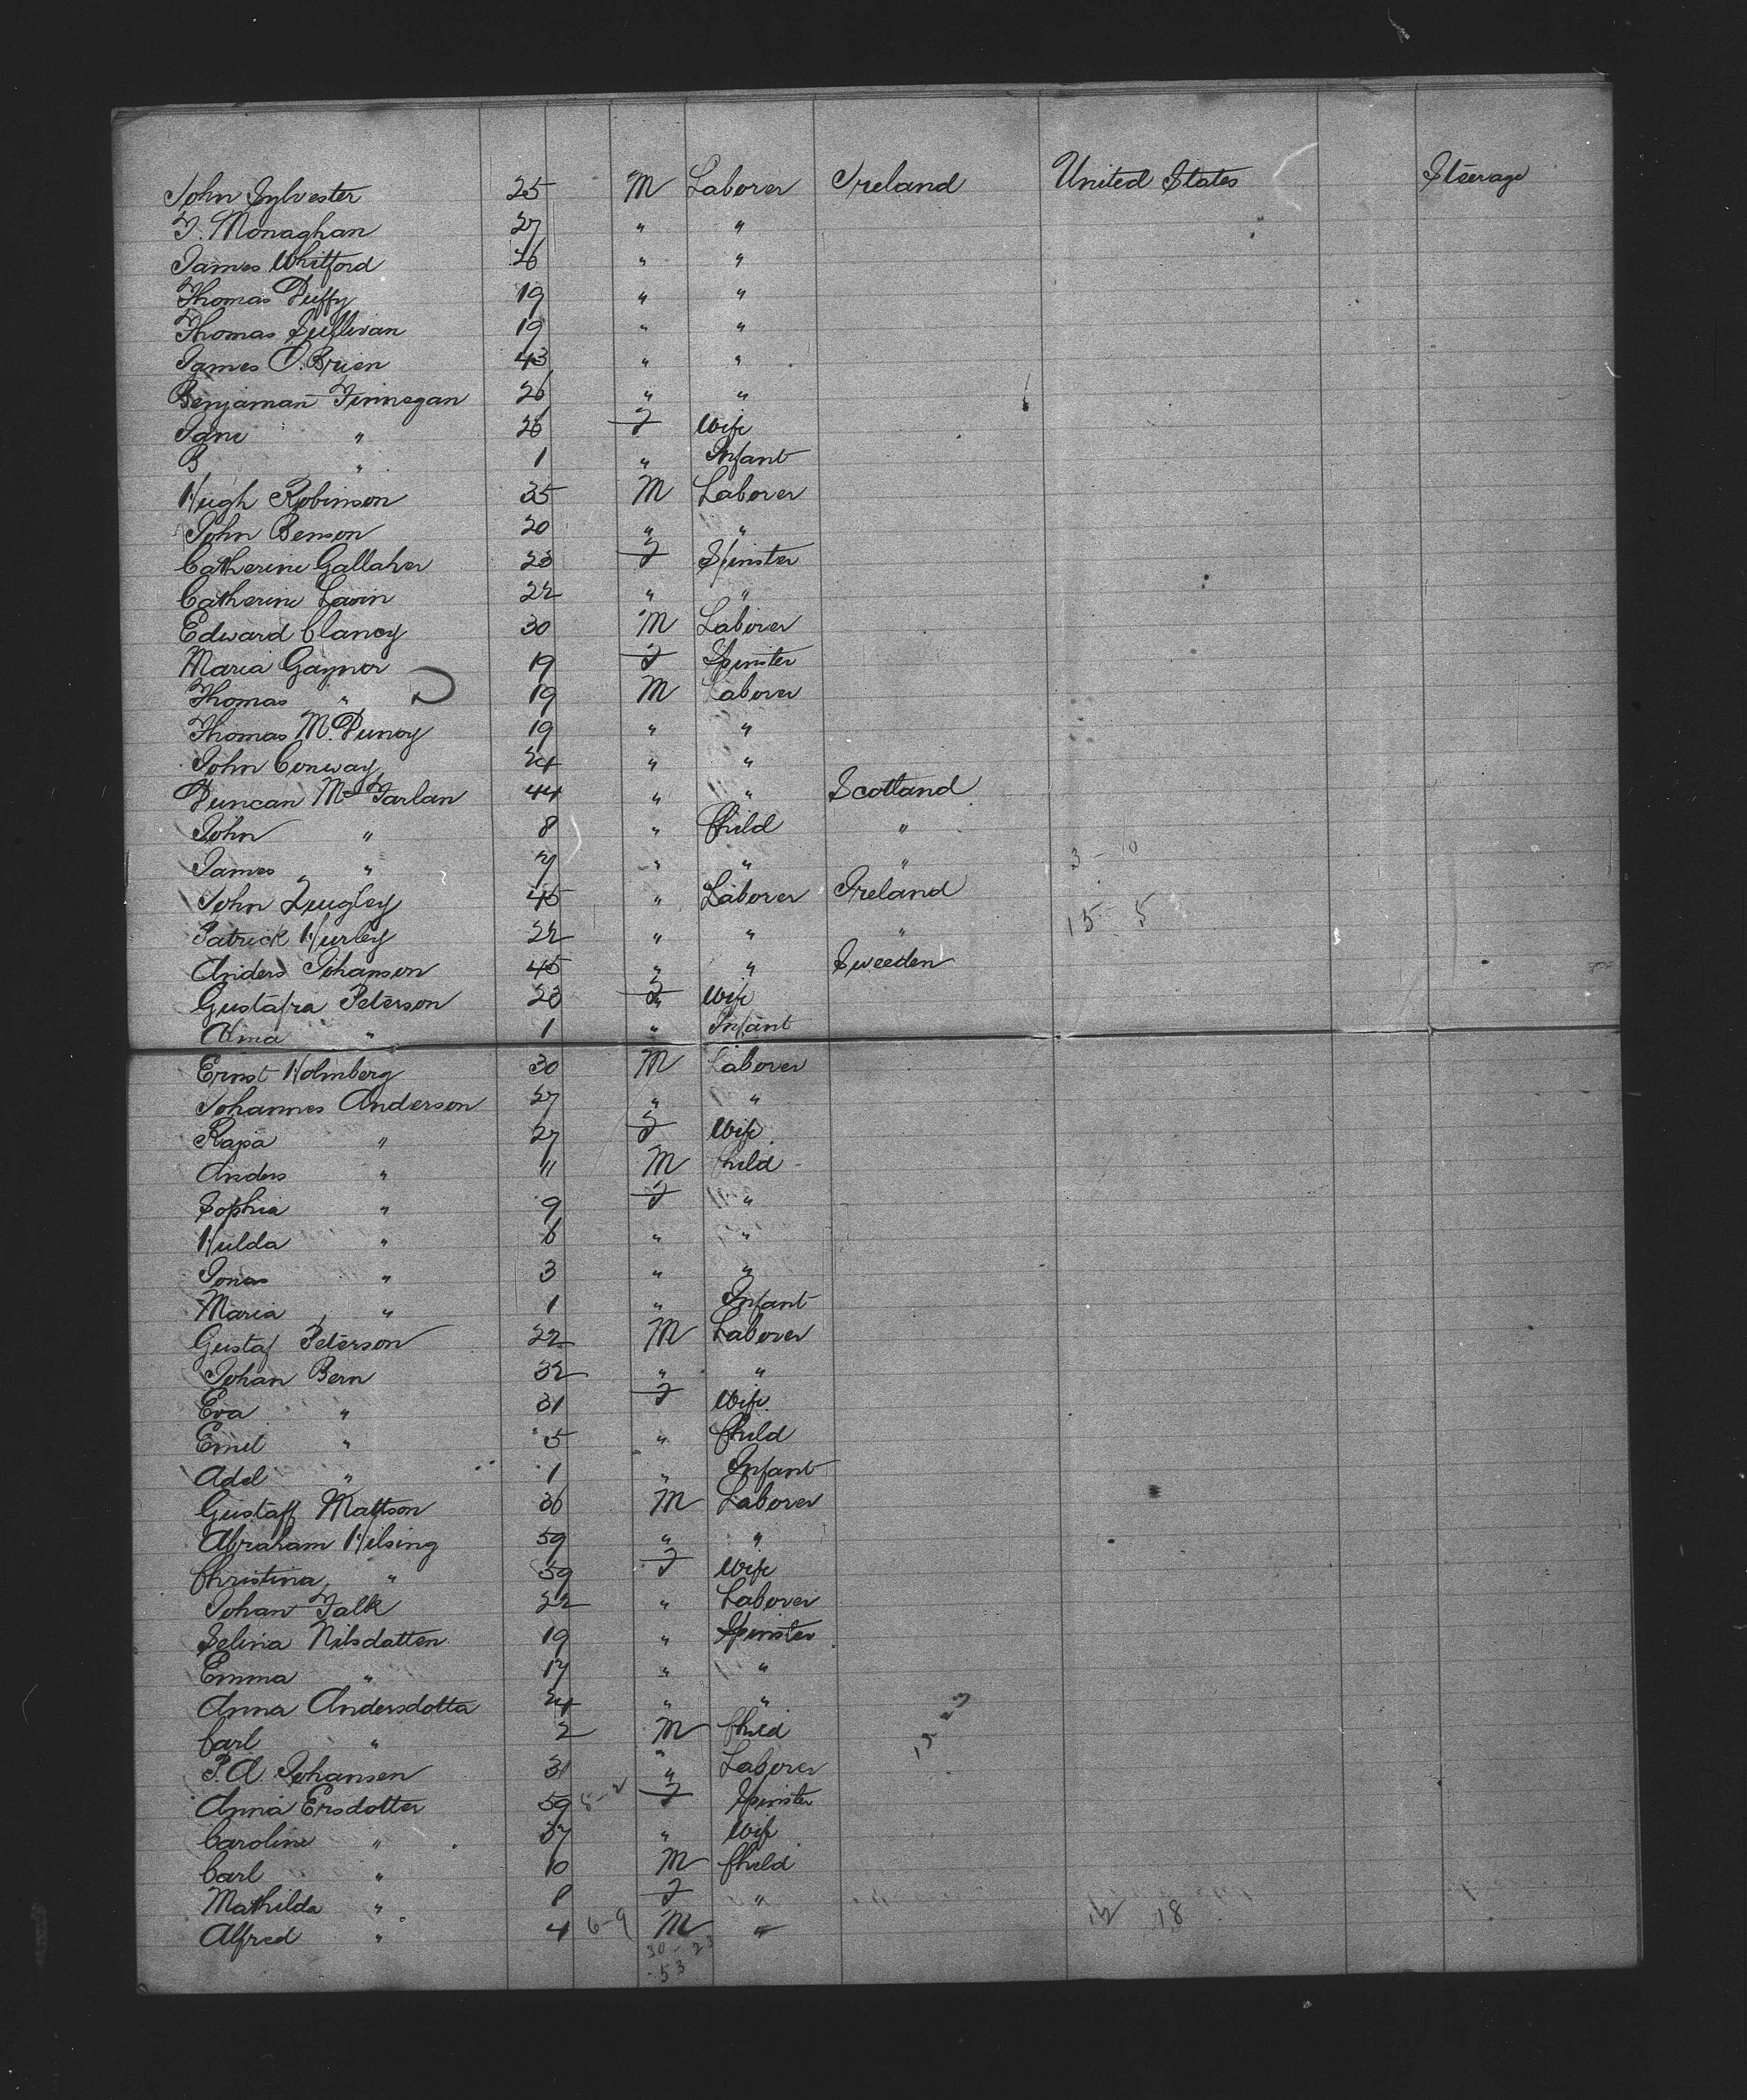 John Sylvester 25 M Laborer Ireland United States Steerage
T. Monaghan 27 " "
James Whitford 26 " "
Thomas Duffy 19 " "
Thomas Sullivan 19 " "
James O'Brien 43 " "
Benjaman Finnegan 26 " "
Jane " 26 F Wife
B " 1 " Infant
Hugh Robinson 35 M Laborer
John Benson 20 " "
Catherine Gallaher 23 F Spinster
Catherine Lavin 22 " "
Edward Clancy 30 M Laborer
Maria Gaynor 19 F Spinster
Thomas " 19 M Laborer
Thomas McDunoy 19 " "
John Conway 24 " "
Duncan McFarlan 44 " " Scotland
John " 8 " Child "
James " 7 " " " 3 - 10
John Quigley 45 " Laborer Ireland
Patrick Hurley 22 " " " 15 5
Anders Johanson 45 " " Sweeden
Gustafra Peterson 23 F Wife
Alma " 1 " Infant
Ernst Holmberg 30 M Laborer
Johannes Anderson 27 " "
Kajsa " 27 F Wife
Anders " 11 M Child
Sophia " 9 F "
Hulda " 6 " "
Jonas " 3 " "
Maria " 1 " Infant
Gustaf Peterson 22 M Laborer
Johan Bern 32 " "
Eva " 31 F Wife
Emil " 5 " Child
Adel " 1 " Infant
Gustaff Mattson 36 M Laborer
Abraham Hilsing 59 " "
Christina " 59 F Wife
Johan Falk 22 " Laborer
Selina Nilsdatten 19 " Spinster
Emma " 17 " "
Anna Andersdotta 24 " "
Carl " 2 M Child
P.A. Johansen 31 " Laborer
Anna Ersdotter 59 5-2 F Spinster
Caroline " 37 " Wife
Carl " 10 M Child
Mathilda " 8 F "
Alfred " 4 6-9 M " 12 18
30 - 23
53